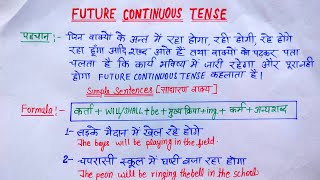 FUTURE CONTINUOUS TENSE
पहचान:- जिन वाक्यों के अन्त में रहा होगा, रही होगी, रहे होंगे
रहा हूंगा आदि शब्द आते हैं तथा वाक्यों को पढ़कर पता
चलता है कि कार्य भविष्य में जारी रहेगा और पूरा नहीं
होगा FUTURE CONTINUOUS TENSE कहलाता है।
Simple Sentences [साधारण वाक्य]
Formula:- कर्ता + WILL/SHALL + be + मुख्य क्रिया + ing + कर्म + अन्य शब्द
1- लड़के मैदान में खेल रहे होंगे
The boys will be playing in the field.
2- चपरासी स्कूल में घण्टी बजा रहा होगा
The peon will be ringing the bell in the school